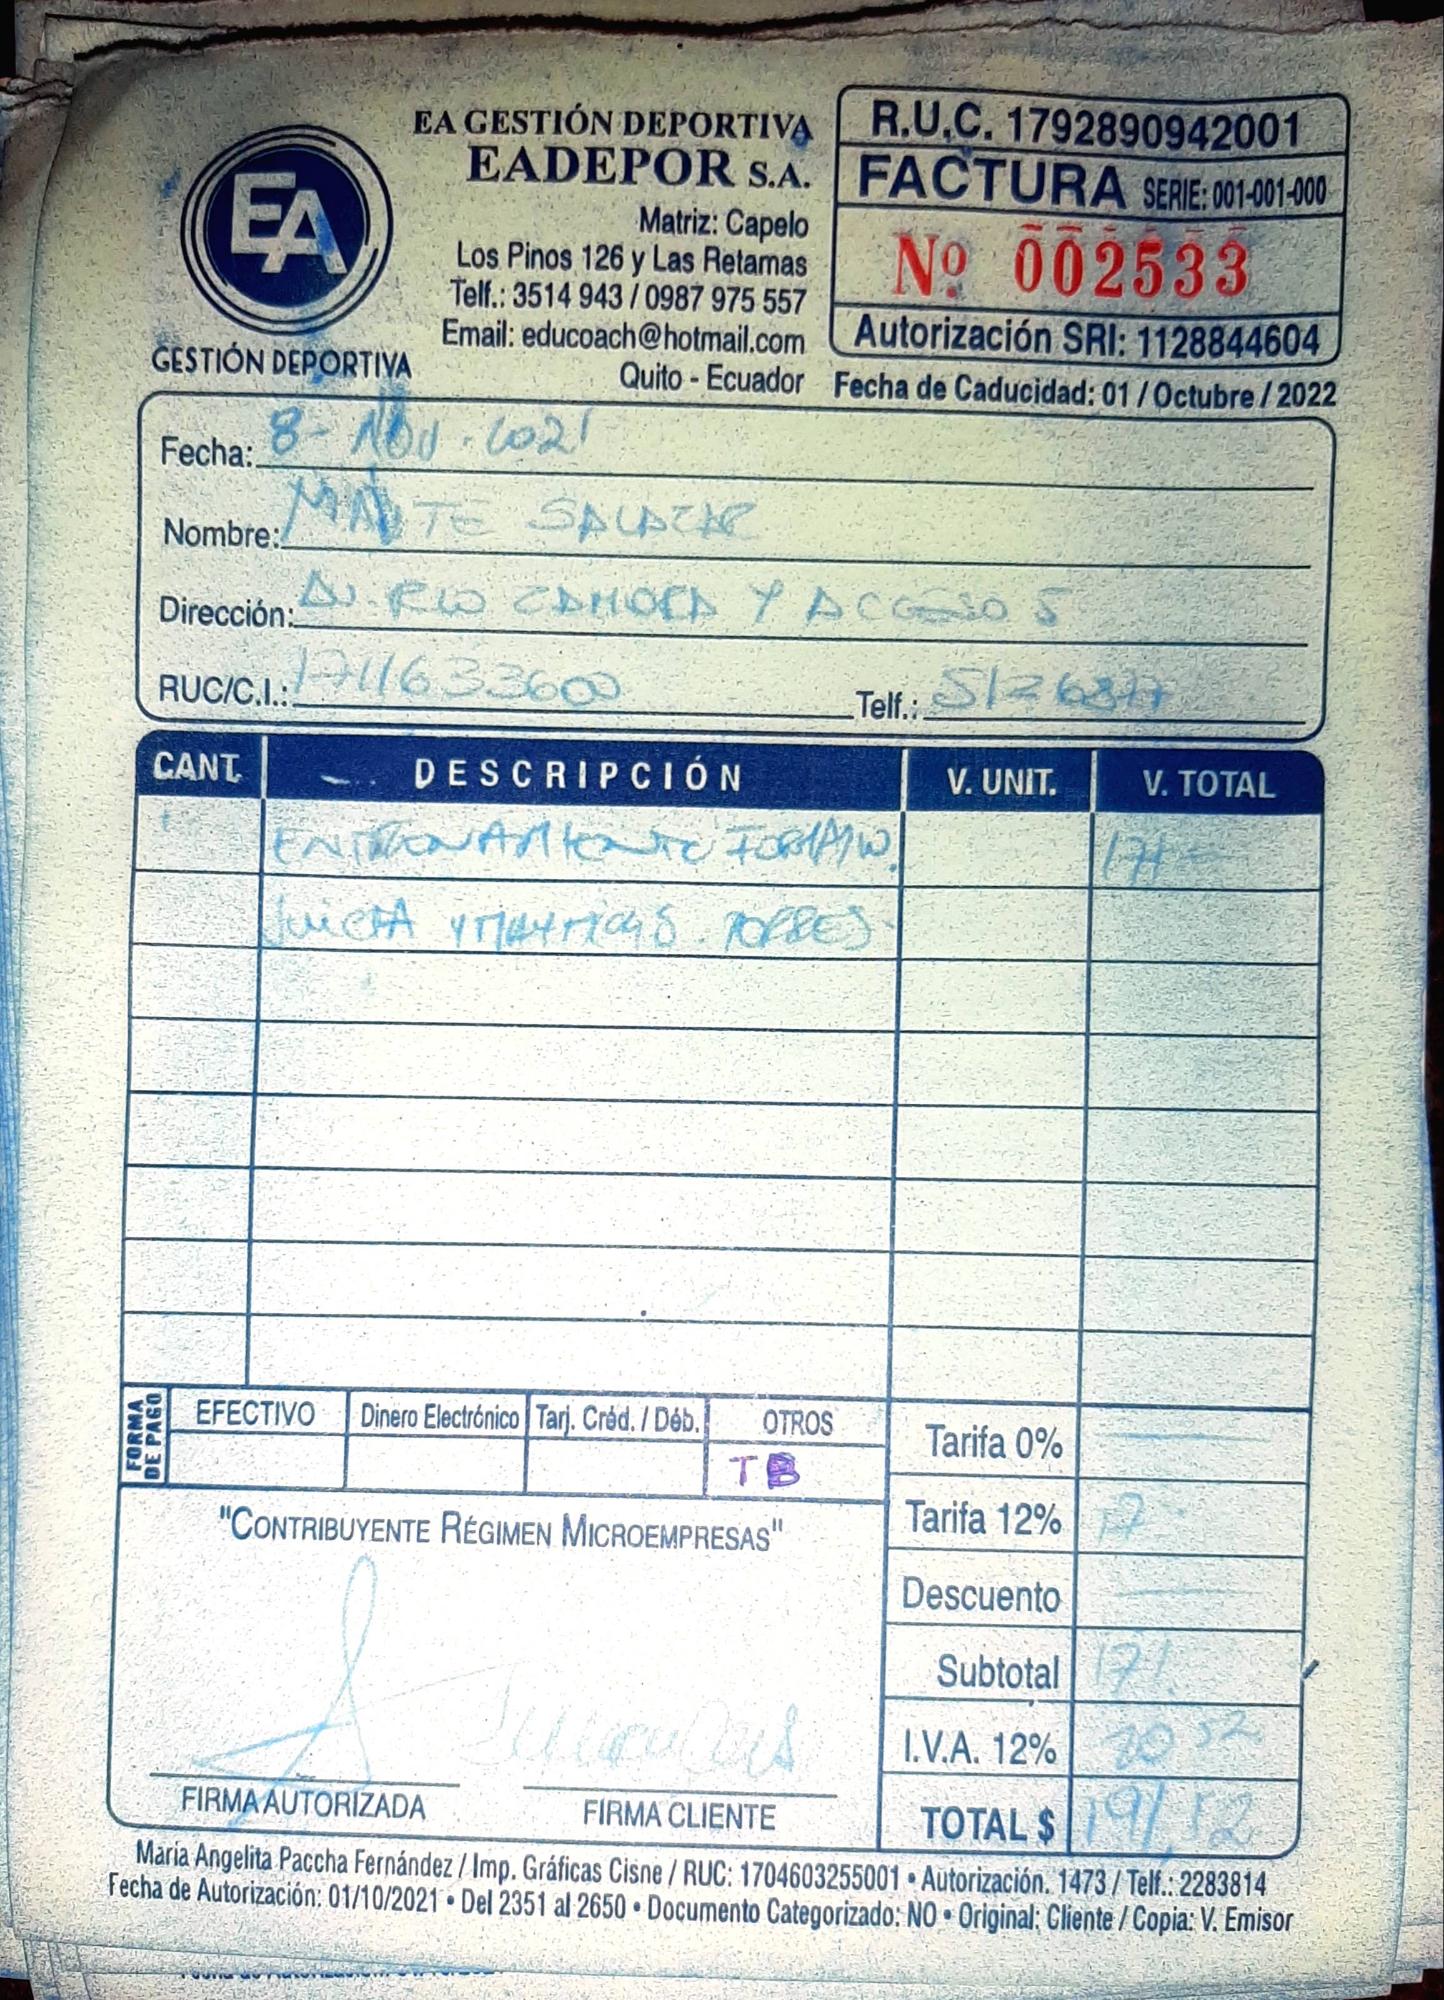 EA
GESTIÓN DEPORTIVA
EA GESTIÓN DEPORTIVA
EADEPOR S.A.
Matriz: Capelo
Los Pinos 126 y Las Retamas
Telf.: 3514 943 / 0987 975 557
Email: educoach@hotmail.com
Quito - Ecuador
R.U.C. 1792890942001
FACTURA SERIE: 001-001-000
Nº 002533
Autorización SRI: 1128844604
Fecha de Caducidad: 01 / Octubre / 2022
Fecha: 8- NOV. 2021
Nombre: SALAZAR
Dirección: AV. RIO ZAMORA Y ACCESO 5
RUC/C.I.: 1711633600 Telf.:
CANT. DESCRIPCIÓN V. UNIT. V. TOTAL
ENTRENAMIENTO 171
TORRES
FORMA DE PAGO
EFECTIVO Dinero Electrónico Tarj. Créd. / Déb. OTROS
TB
Tarifa 0%
Tarifa 12%
Descuento
Subtotal 171.
I.V.A. 12% 20 52
TOTAL $ 191,52
"CONTRIBUYENTE RÉGIMEN MICROEMPRESAS"
FIRMA AUTORIZADA FIRMA CLIENTE
María Angelita Paccha Fernández / Imp. Gráficas Cisne / RUC: 1704603255001 • Autorización. 1473 / Telf.: 2283814
Fecha de Autorización: 01/10/2021 • Del 2351 al 2650 • Documento Categorizado: NO • Original: Cliente / Copia: V. Emisor